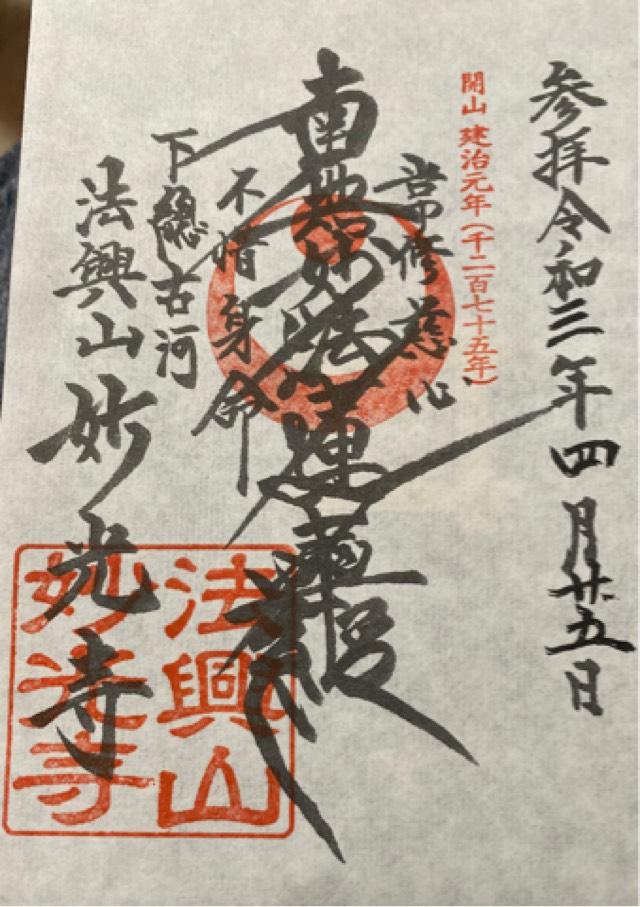 参拝令和三年四月廿五日
開山 建治元年(千二百七十五年)
常修慈心
南無妙法蓮華経
不惜身命
下總古河
法興山妙光寺
法興山
妙光寺